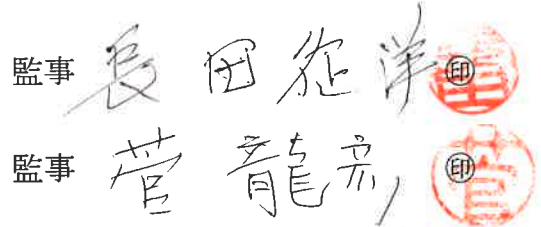 監事 長田征洋 ㊞
監事 菅龍彦 ㊞